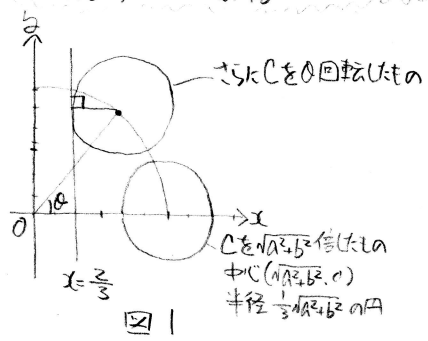 y
さらにCをθ回転したもの
θ
O
x
x=2/3
Cを√a²+b²倍したもの
中心(√a²+b², 0)
半径 1/3√a²+b² の円
図1